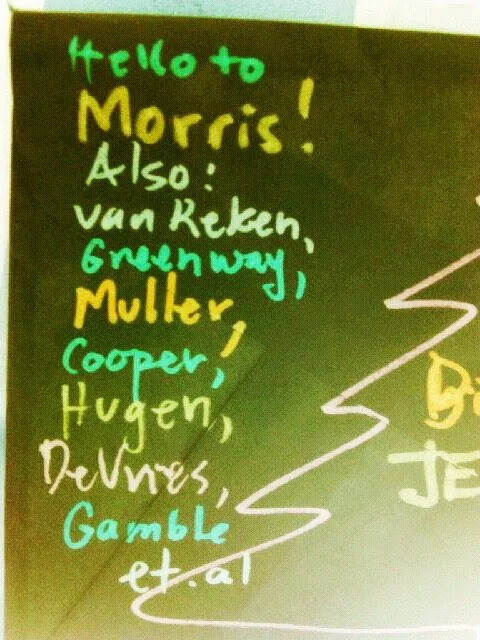 Hello to
Morris!
Also:
van Reken,
Greenway,
Muller,
Cooper,
Hugen,
DeVries,
Gamble
et.al
JE